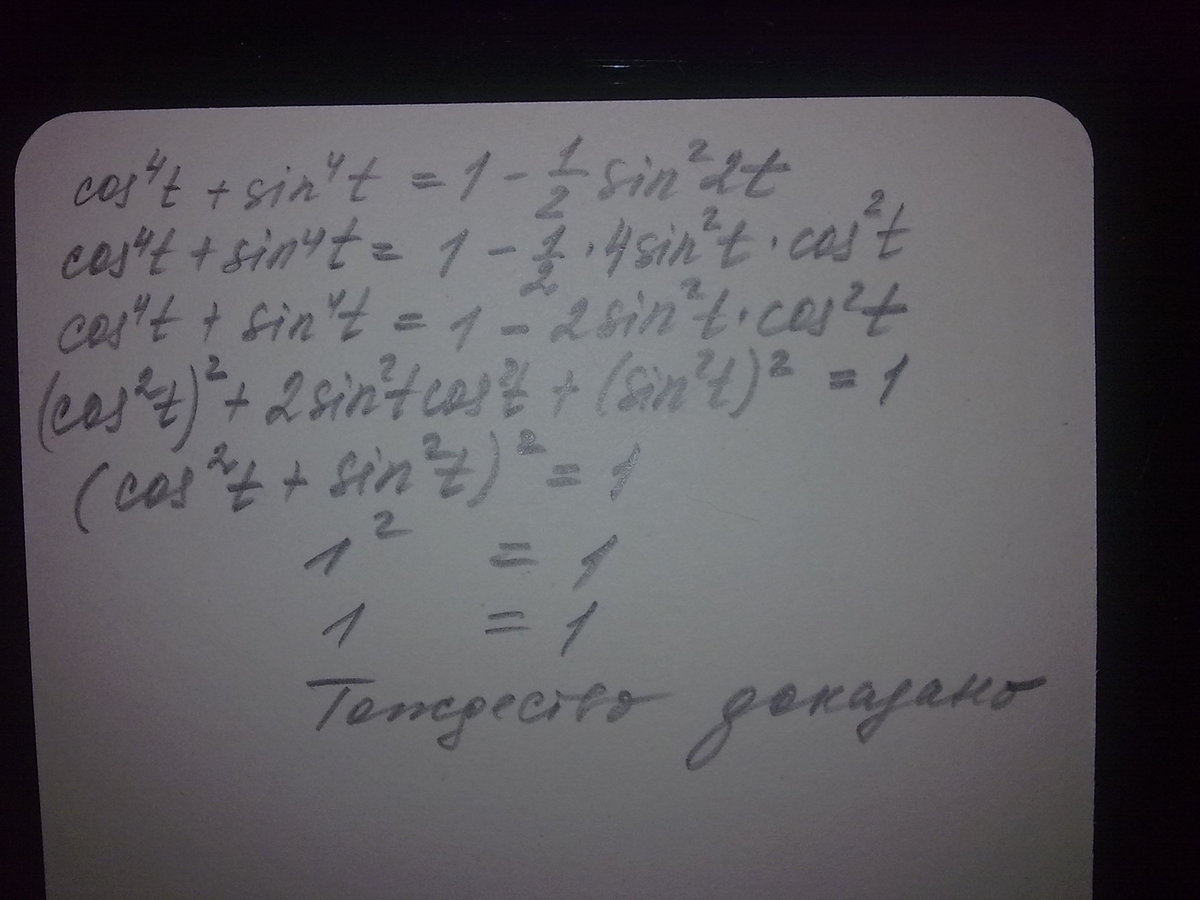 cos⁴t + sin⁴t = 1 - 1/2 sin²2t
cos⁴t + sin⁴t = 1 - 1/2 · 4sin²t · cos²t
cos⁴t + sin⁴t = 1 - 2sin²t · cos²t
(cos²t)² + 2sin²t cos²t + (sin²t)² = 1
(cos²t + sin²t)² = 1
1² = 1
1 = 1
Тождество доказано